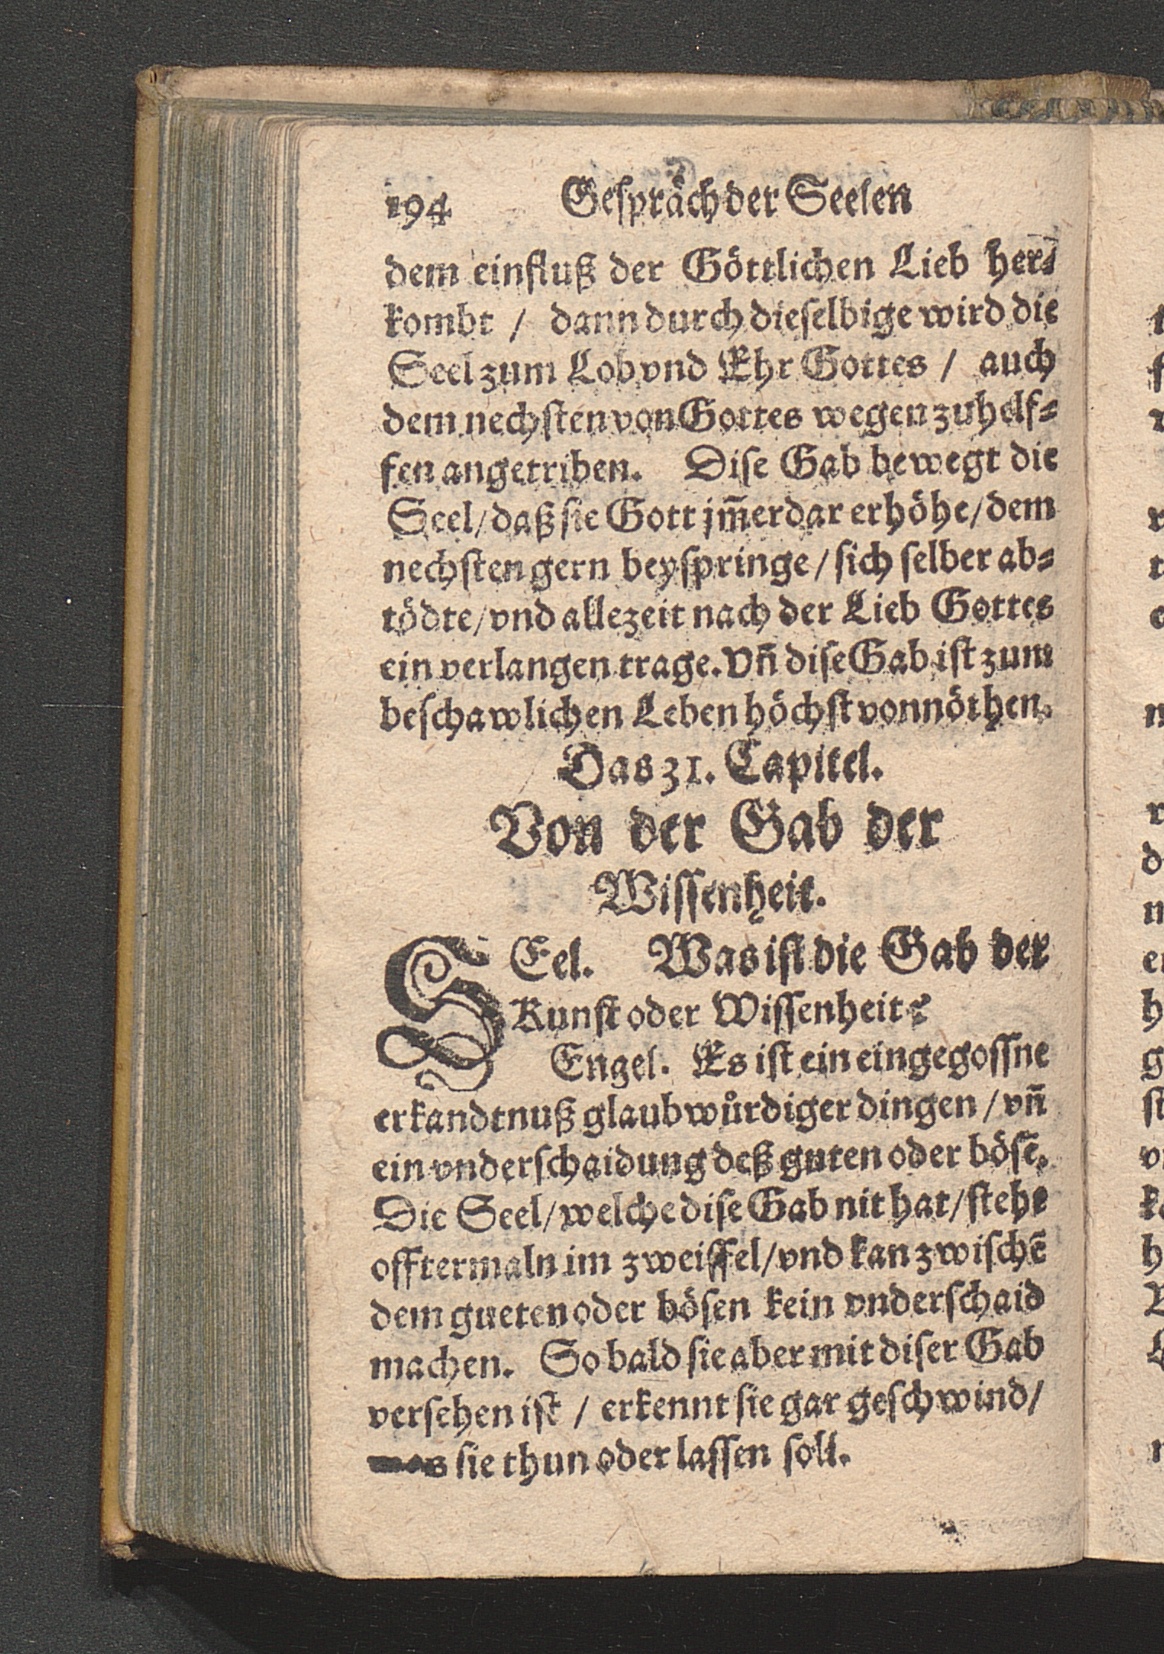 194 Gespräch der Seelen
dem einfluß der Göttlichen Lieb her⸗
kombt / dann durch dieselbige wird die
Seel zum Lob vnd Ehr Gottes / auch
dem nechsten von Gottes wegen zuhelf⸗
fen angetriben. Dise Gab bewegt die
Seel / daß sie Gott jm̃erdar erhöhe / dem
nechsten gern beyspringe / sich selber ab⸗
tödte / vnd allezeit nach der Lieb Gottes
ein verlangen trage. Vñ dise Gab ist zum
beschawlichen Leben höchst vonnöthen.
Das 31. Capitel.
Von der Gab der
Wissenheit.
SEel. Was ist die Gab der
Kunst oder Wissenheit?
Engel. Es ist ein eingegossne
erkandtnuß glaubwůrdiger dingen / vñ
ein vnderschaidung deß guten oder bösẽ.
Die Seel / welche dise Gab nit hat / steht
offtermaln im zweiffel / vnd kan zwischẽ
dem gueten oder bösen kein vnderschaid
machen. So bald sie aber mit diser Gab
versehen ist / erkennt sie gar geschwind /
was sie thun oder lassen soll.